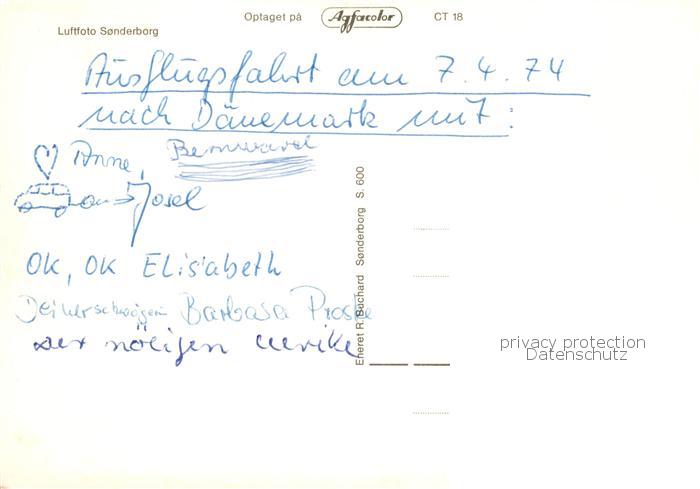 Luftfoto Sønderborg
Optaget på Agfacolor CT 18
Ausflugsfahrt am 7.4.74
nach Dänemark mit:
Anne, Bernward
Josel
OK, OK Elisabeth
Barbara Proske
der nötigen Ulrike
Eneret R. Buchard Sønderborg S. 600
privacy protection
Datenschutz